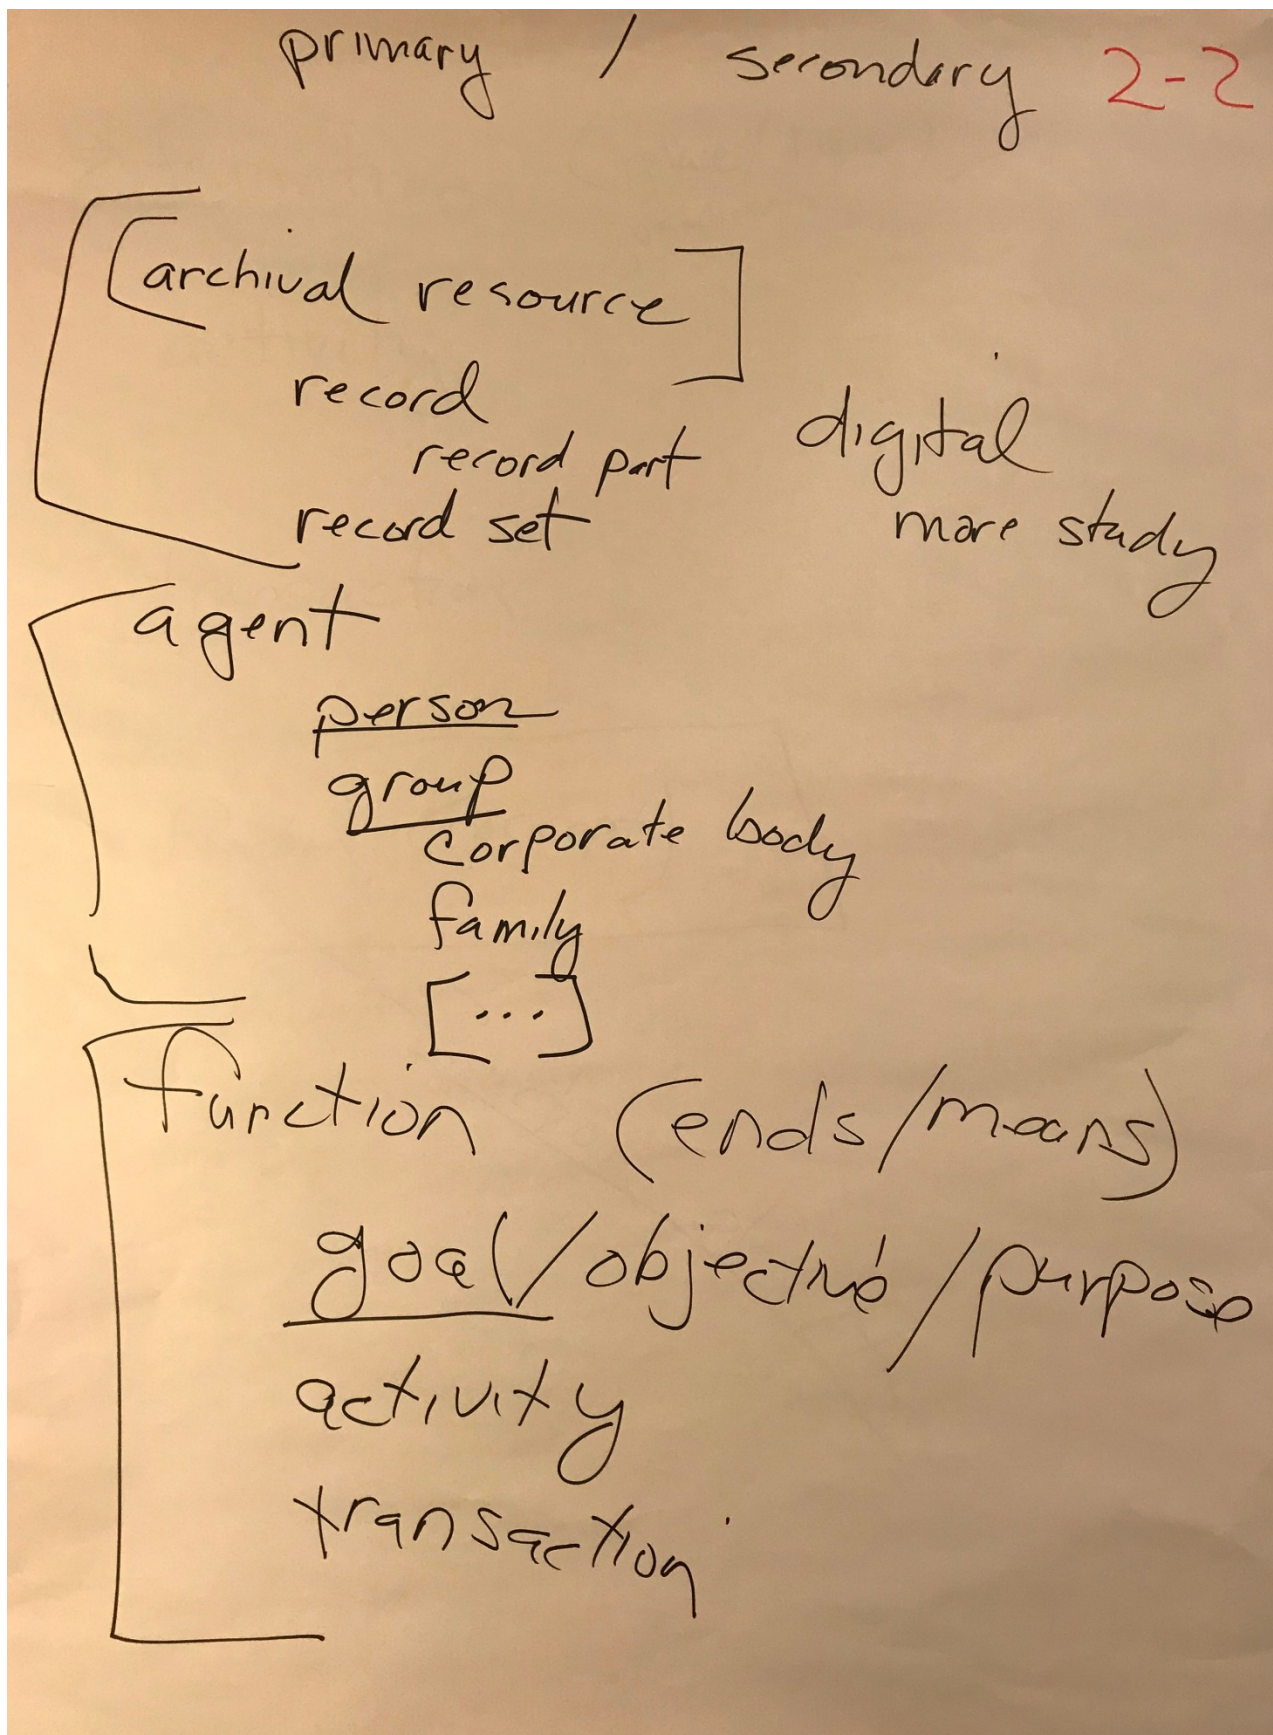 primary / secondary 2-2
[archival resource]
record
record part
record set
digital
more study
agent
person
group
corporate body
family
[...]
function (ends/means)
goal/objective/purpose
activity
transaction